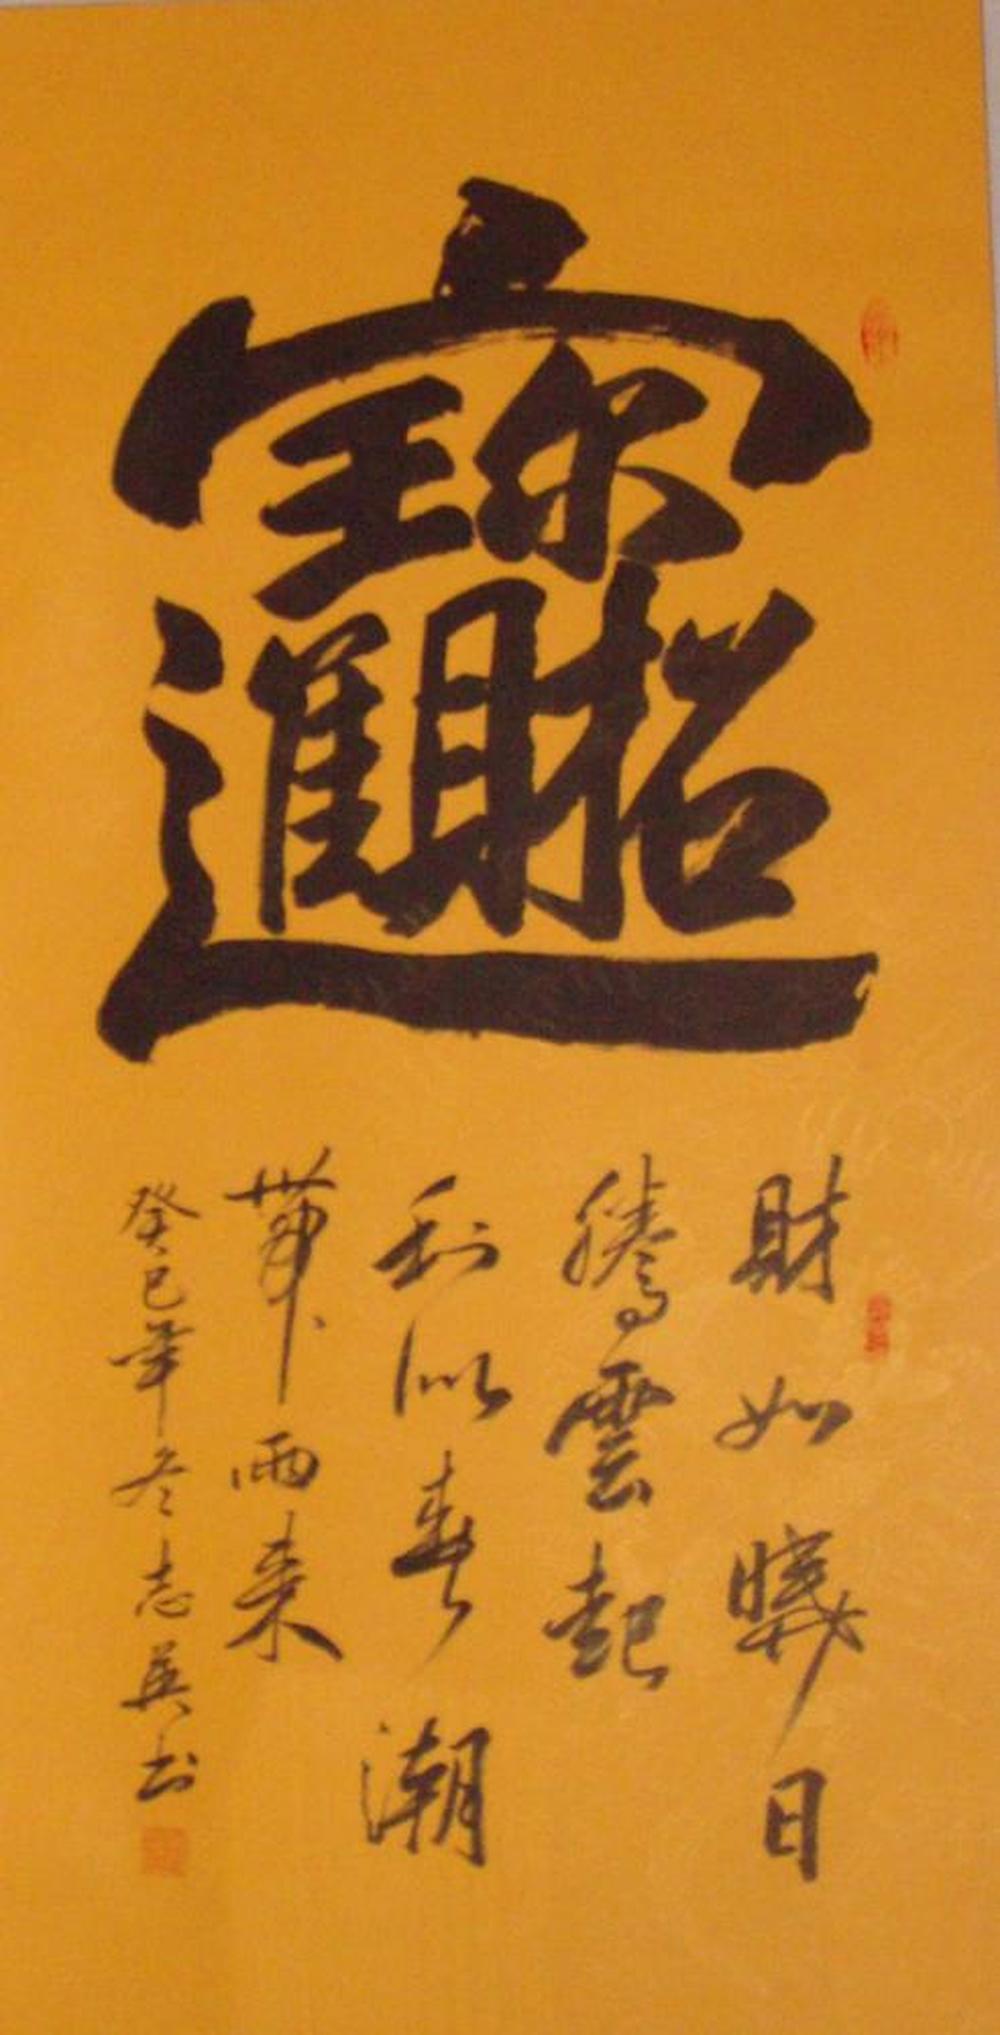 招財進寶
財如曉日
騰雲起
利似春潮
帶雨來
癸巳年冬志英书